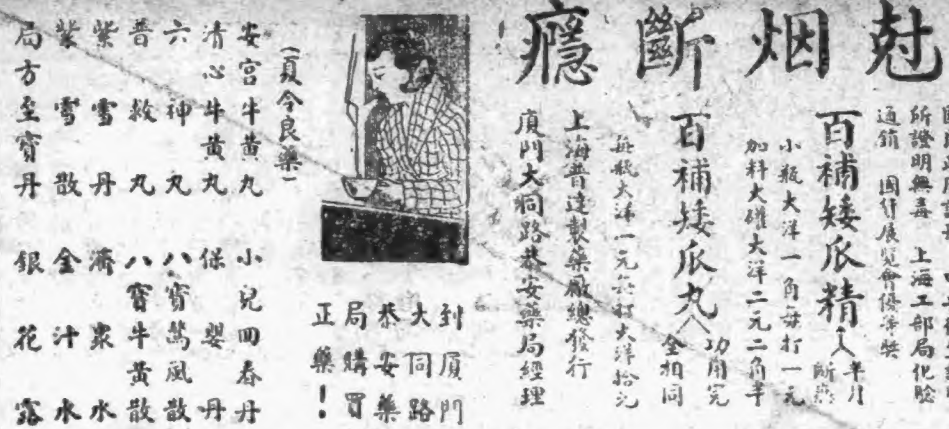 尅烟斷癮
所證明無毒 上海工部局化驗
通銷 國貨展覽會優等獎
百補矮瓜精 半月斷癮
小瓶大洋一角每打一元
加料大磪大洋二元二角半
百補矮瓜丸 功用完全相同
每瓶大洋一元每打大洋拾元
上海普達製藥廠總發行
廈門大同路恭安藥局經理
到廈門
大同路
恭安藥
局購買
正藥！
（夏令良藥）
安宮牛黃丸 小兒回春丹
清心牛黃丸 保嬰丹
六神丸 八寶驚風散
普救丸 八寶牛黃散
紫雪丹 濟衆水
紫雪散 金汁水
局方至寶丹 銀花露